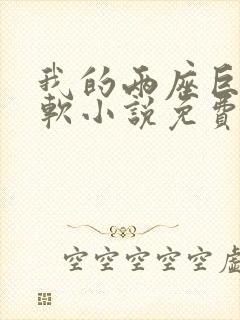 我的两座巨
软小說免費
空空空空空虛